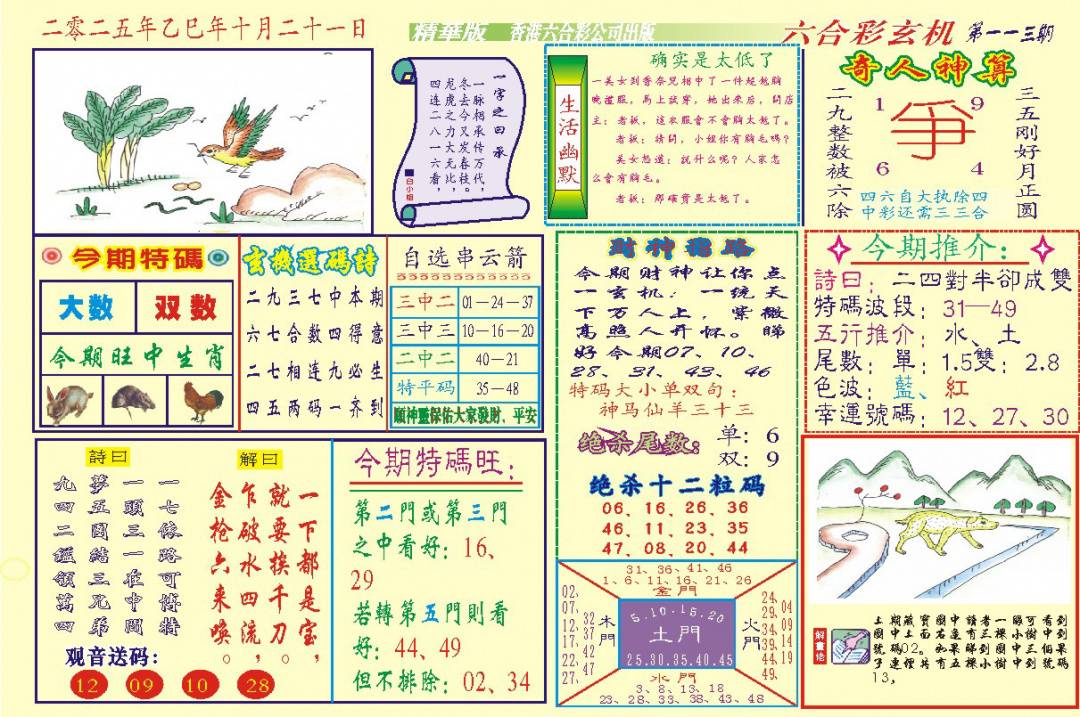 二零二五年乙巳年十月二十一日
精華版 香港六合彩公司出版
六合彩玄机 第一一三期
一字之曰承
一脉相承传万代，
冬去今又发春枝，
龙虎之力大无比，
四连二八一六看。
白小姐
生活幽默
确实是太低了
一美女到香奈兒相中了一件超低胸
晚禮服，馬上試穿，她出來后，問店
主：老板，這衣服會不會胸太低了。
老板：請問，小姐你有胸毛嗎？
美女怒道：説什么呢？人家怎
么會有胸毛。
老板：那確實是太低了。
奇人神算
二九整数被六除
1 9
爭
6 4
三五刚好月正圆
四六自大执除四
中彩还需三三合
今期特碼
大数 双数
今期旺中生肖
玄機選碼詩
二九三七中本期
六七合数四得意
二七相连九必生
四五两码一齐到
自选串云箭
三中二 01－24－37
三中三 10－16－20
二中二 40－21
特平码 35－48
順神靈保佑大家發財、平安
財神密路
今期财神让你点
一玄机：一统天
下万人上，紫微
高照人开怀。睇
好今期07、10、
28、31、43、46
特码大小单双句：
神马仙羊三十三
绝杀尾数：
单：6
双：9
绝杀十二粒码
06、16、26、36
46、11、23、35
47、08、20、44
今期推介：
詩曰：二四對半卻成雙
特碼波段：31—49
五行推介：水、土
尾數：單：1.5雙：2.8
色波：藍、紅
幸運號碼：12、27、30
詩曰
一七像路可博特
一頭三一在中間
夢五國結三兄弟
九四二鑑領萬四
解曰
一下都是宝，
就要挨千刀。
乍破水四流，
金枪六来唤
观音送码：
12 09 10 28
今期特碼旺：
第二門或第三門
之中看好：16、
29
若轉第五門則看
好：44、49
但不排除：02、34
31、36、41、46
1、6、11、16、21、26
金門
02、07、12、17、22、27、
32、37、42、47
木門
5.10.15.20
土門
25.30.35.40.45
火門
24、29、34、39、44、49
04、09、14、19
水門
3、8、13、18
23、28、33、38、43、48
解畫佬
土期藏寶圖中讀者一睇可看到
圖中上面右邊有三棵小樹中到
號碼02。如果睇到圖中三個果
子連鋰共有五棵小樹中到號碼
13，